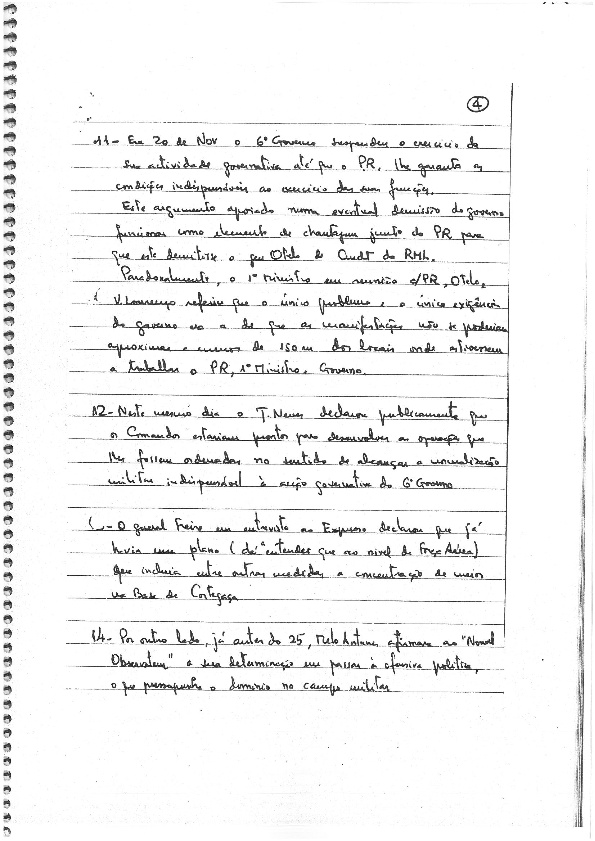 4
11- Em 20 de Nov o 6º Governo suspendeu o exercício da
sua actividade governativa até que o P.R. lhe garanta as
condições indispensáveis ao exercício das suas funções.
Este argumento apoiado numa eventual demissão do governo
funcionou como elemento de chantagem junto do PR para
que este demitisse o gen Otelo de Cmdt da RML.
Paradoxalmente, o 1º Ministro em reunião c/PR, Otelo,
V. Lourenço referiu que o único problema e a única exigência
do governo era a de que as manifestações não se poderiam
aproximar a menos de 150m dos locais onde estivessem
a trabalhar o PR, 1º Ministro, Governo.
12- Neste mesmo dia o J. Neves declarou publicamente que
os Comandos estariam prontos para desenvolver as operações que
lhes fossem ordenadas no sentido de alcançar a normalização
militar indispensável à acção governativa do 6º Governo
- O general Freire em entrevista ao Expresso declarou que já
havia um plano (dá a entender que ao nível de Força Aérea)
que incluia entre outras medidas a concentração de meios
na Base de Cortegaça
14- Por outro lado, já antes do 25, Melo Antunes afirmara ao "Nouvel
Observateur" a sua determinação em passar à ofensiva política,
o que pressupunha o domínio no campo militar